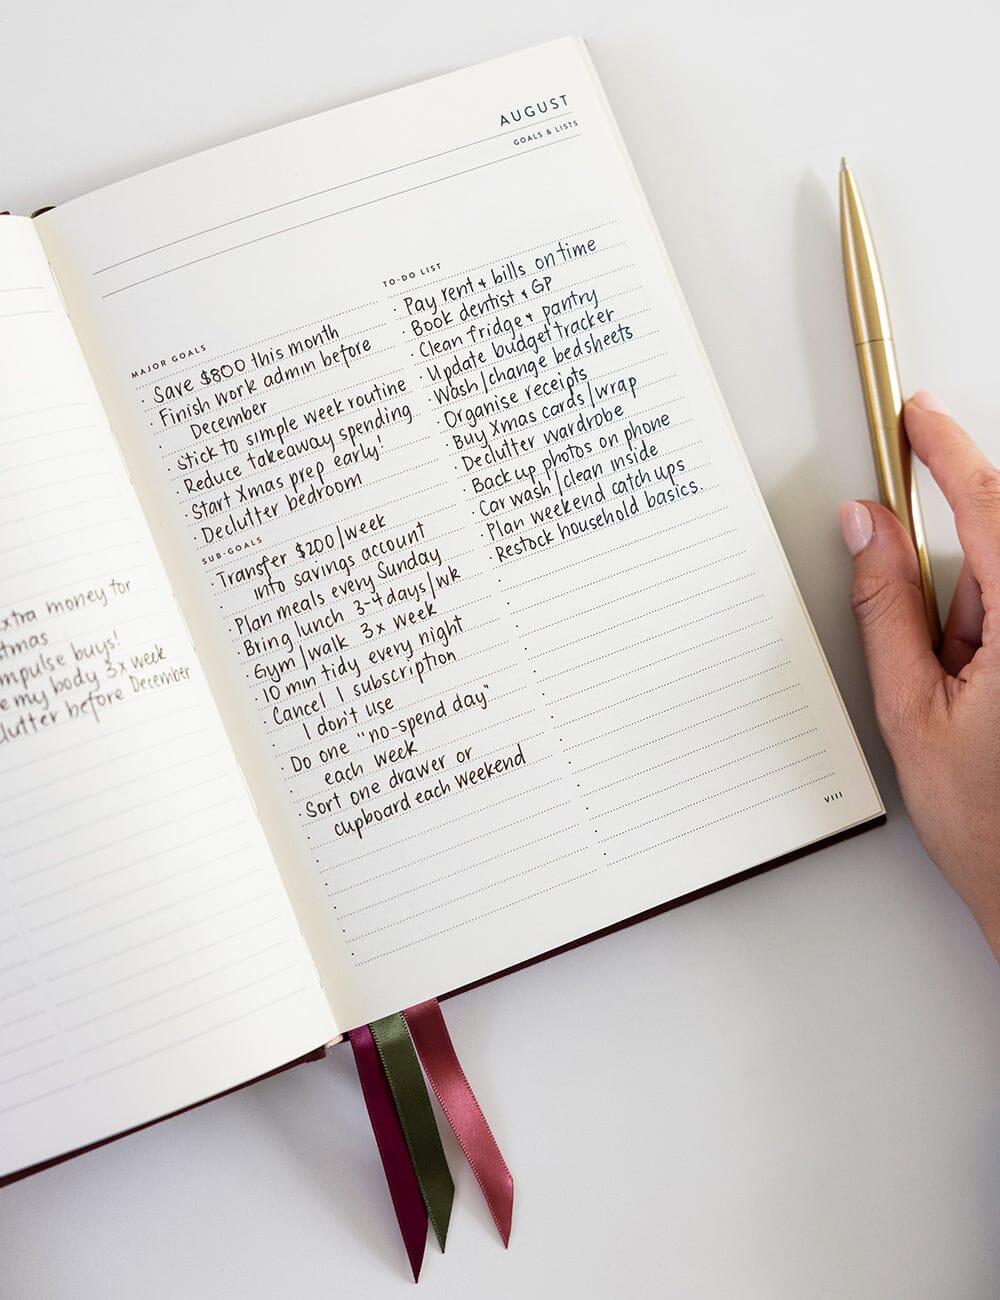 extra money for
impulse buys!
my body 3x week
before December
AUGUST
GOALS & LISTS
MAJOR GOALS
· Save $800 this month
· Finish work admin before
December
· stick to simple week routine
· Reduce takeaway spending
· Start Xmas prep early!
· Declutter bedroom
SUB-GOALS
· Transfer $200/week
into savings account
· Plan meals every Sunday
· Bring lunch 3-4 days/wk
· Gym/walk 3x week
· 10 min tidy every night
· Cancel 1 subscription
I don't use
· Do one "no-spend day"
each week
· Sort one drawer or
cupboard each weekend
TO-DO LIST
· Pay rent & bills on time
· Book dentist & GP
· Clean fridge & pantry
· Update budget tracker
· Wash/change bedsheets
· Organise receipts
· Buy Xmas cards/wrap
· Declutter wardrobe
· Back up photos on phone
· Car wash/clean inside
· Plan weekend catch ups
· Restock household basics.
VIII